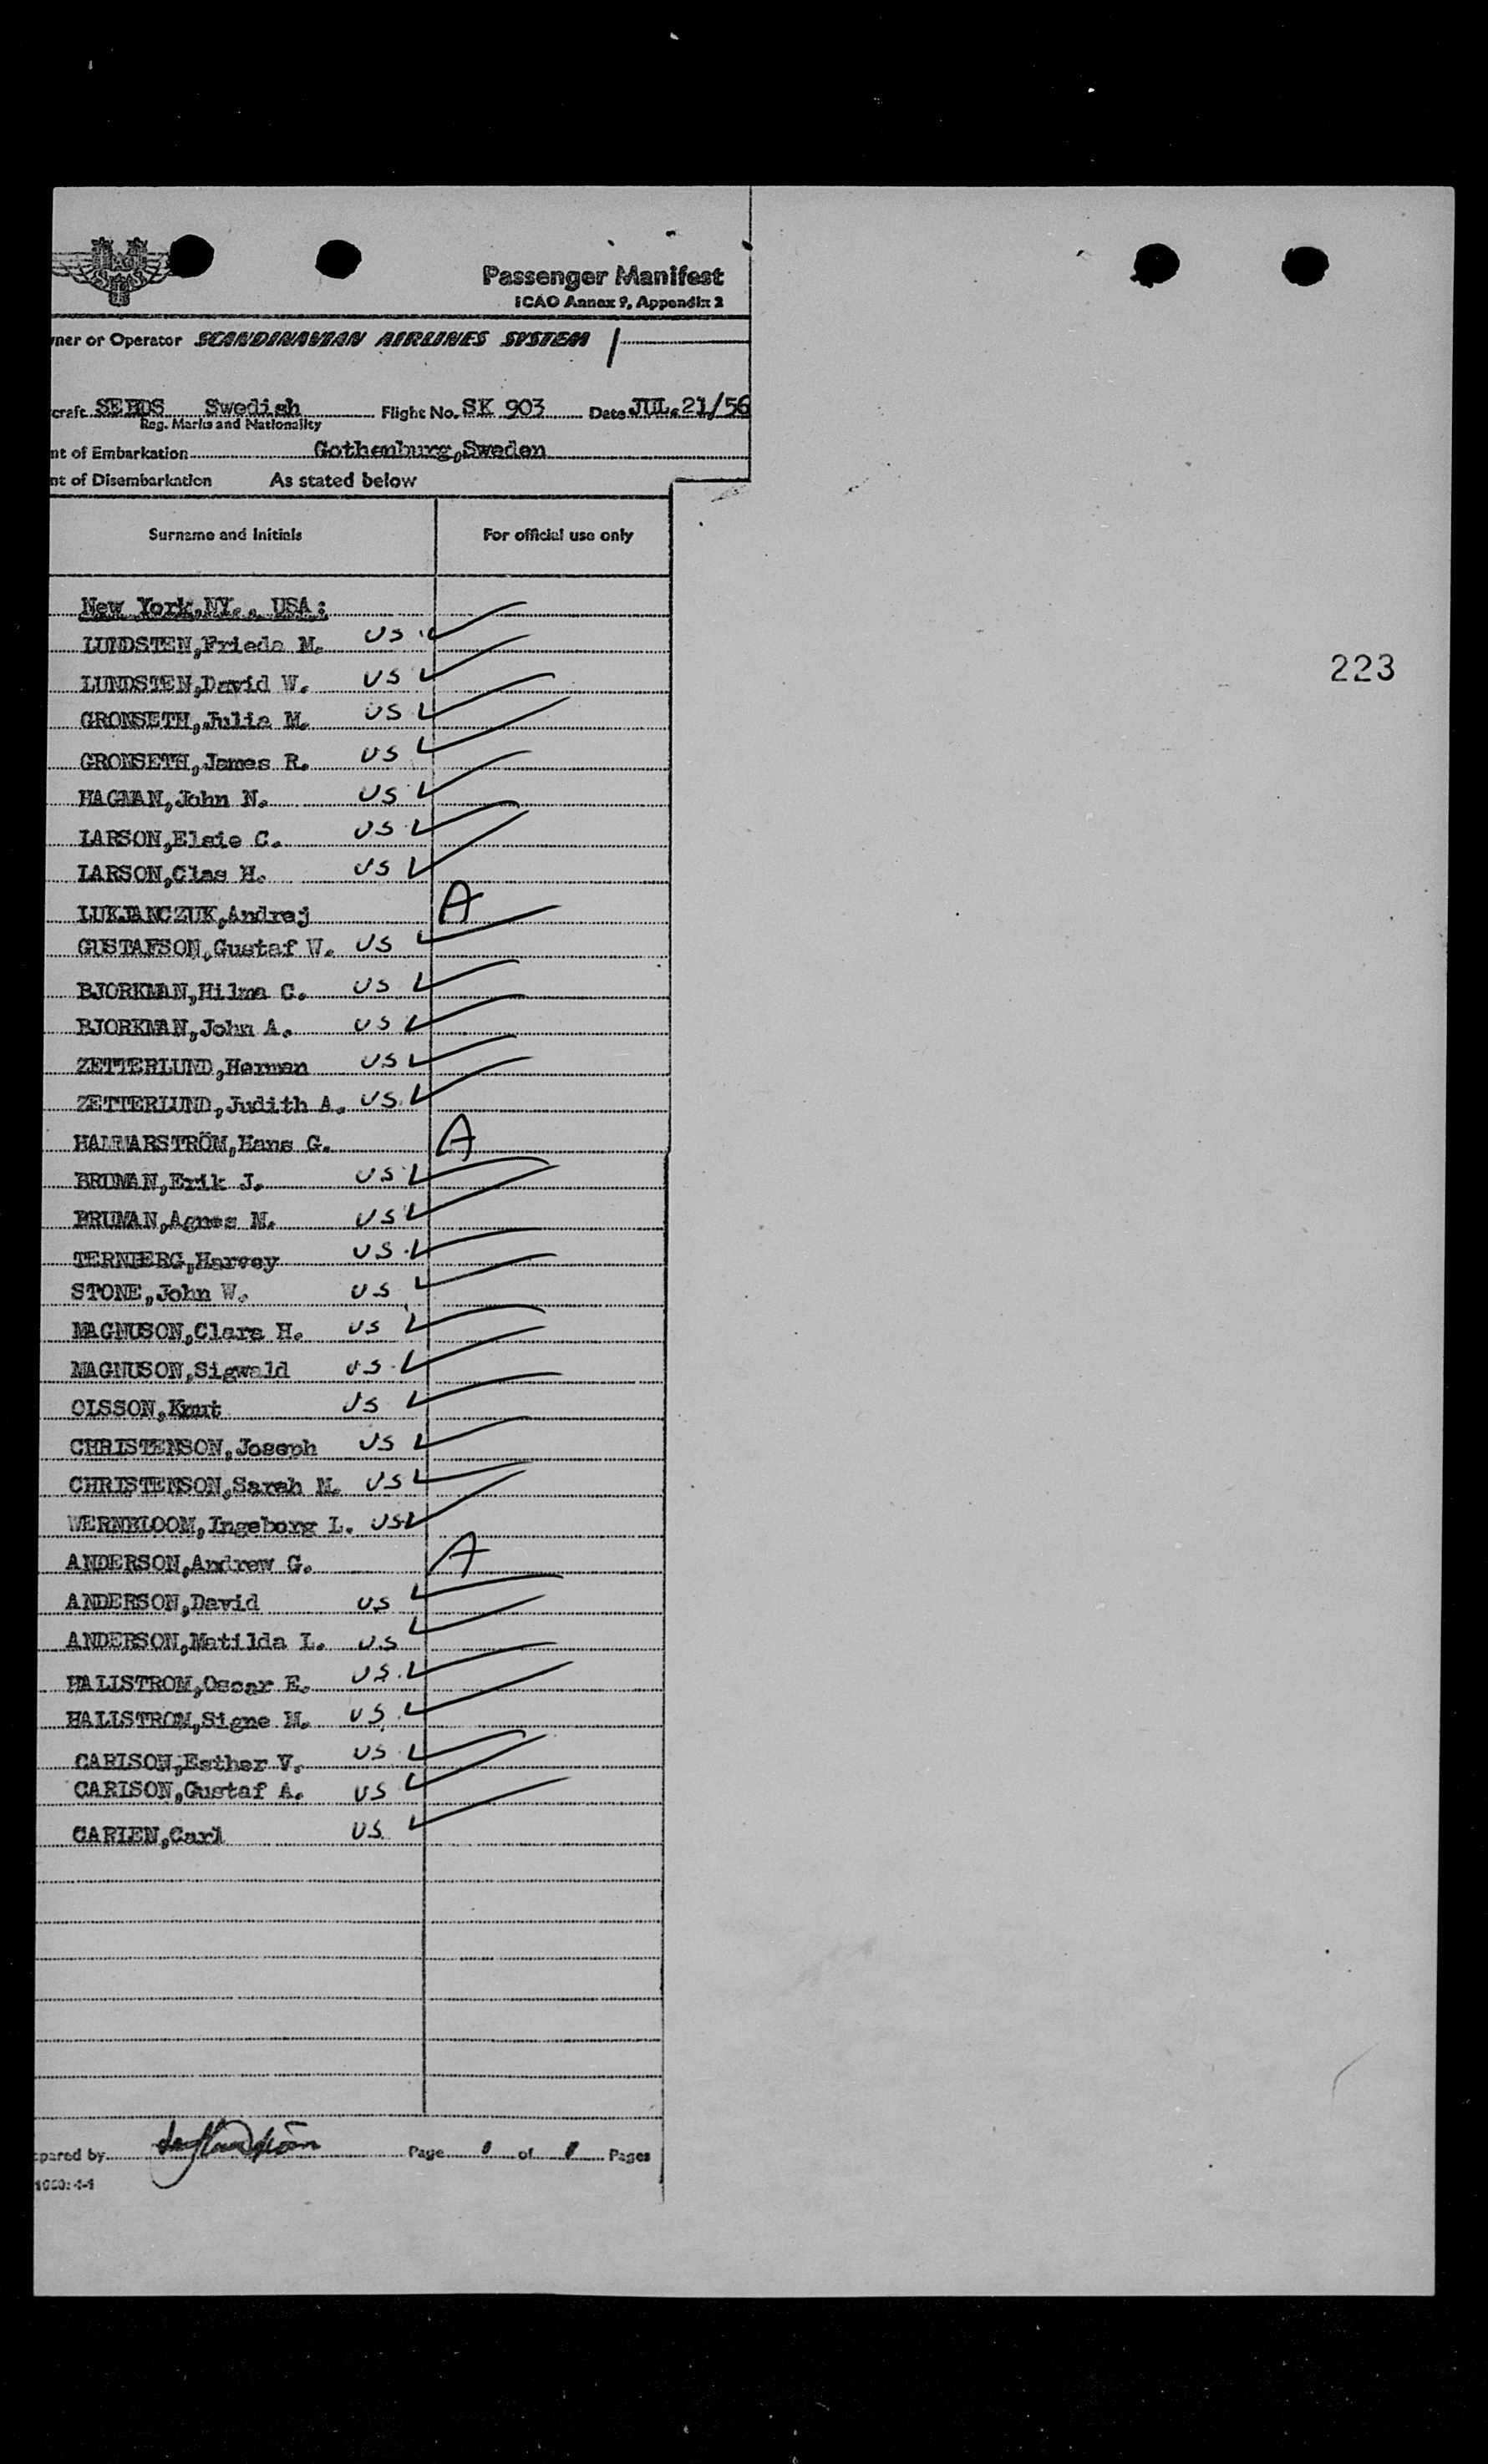 Passenger Manifest
ICAO Annex 9, Appendix 2
ner or Operator SCANDINAVIAN AIRLINES SYSTEM
craft Swedish Flight No. SK 903 Date JUL. 21/56
Reg. Marks and Nationality
nt of Embarkation Gothenburg,Sweden
nt of Disembarkation As stated below
Surname and Initials For official use only
New York,NY., USA:
LUNDSTEN,Frieda M. US
223
LUNDSTEN,David W. US
GRONSETH,Julia M. US
GRONSETH,James R. US
HAGMAN,John N. US
LARSON,Elsie C. US
LARSON,Clas H. US
LUKJANCZUK,Andrej A
GUSTAFSON,Gustaf W. US
BJORKMAN,Hilma C. US
BJORKMAN,John A. US
ZETTERLUND,Herman US
ZETTERLUND,Judith A. US
HAMMARSTRÖM,Hans G. A
BRUMAN,Erik J. US
BRUMAN,Agnes M. US
TERNBERG,Harvey US
STONE,John W. US
MAGNUSON,Clara H. US
MAGNUSON,Sigwald US
OLSSON,Knut US
CHRISTENSON,Joseph US
CHRISTENSON,Sarah M. US
WERNBLOOM,Ingeborg L. US
ANDERSON,Andrew G. A
ANDERSON,David US
ANDERSON,Matilda L. US
HALLSTROM,Oscar E. US
HALLSTROM,Signe M. US
CARLSON,Esther V. US
CARLSON,Gustaf A. US
CARLEN,Carl US
pared by Page 1 of 1 Pages